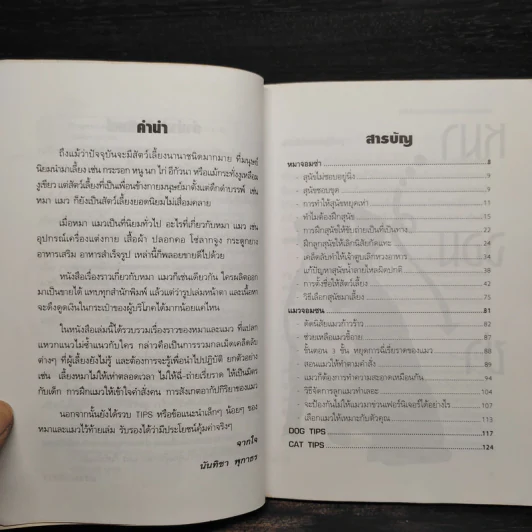 คำนำ
ถึงแม้ว่าปัจจุบันจะมีสัตว์เลี้ยงนานาชนิดมากมาย ที่มนุษย์
นิยมนำมาเลี้ยง เช่น กระรอก หนู นก ไก่ อีกัวนา หรือแม้กระทั่งงูเหลือม
งูเขียว แต่สัตว์เลี้ยงที่เป็นเพื่อนข้างกายมนุษย์มาตั้งแต่ดึกดำบรรพ์ เช่น
หมา แมว ก็ยังเป็นสัตว์เลี้ยงยอดนิยมไม่เสื่อมคลาย
เมื่อหมา แมวเป็นที่นิยมทั่วไป อะไรที่เกี่ยวกับหมา แมว เช่น
อุปกรณ์เครื่องแต่งกาย เสื้อผ้า ปลอกคอ โซ่ลากจูง กระดูกยาง
อาหารเสริม อาหารสำเร็จรูป เหล่านี้ก็พลอยขายดีไปด้วย
หนังสือเรื่องราวเกี่ยวกับหมา แมวก็เช่นเดียวกัน ใครผลิตออก
มาเป็นขายได้ แทบทุกสำนักพิมพ์ แล้วแต่ว่ารูปเล่มหน้าตา และเนื้อหา
จะดึงดูดเงินในกระเป๋าของผู้บริโภคได้มากน้อยแค่ไหน
ในหนังสือเล่มนี้ได้รวบรวมเรื่องราวของหมาและแมว ที่แปลก
แหวกแนวไม่ซ้ำแนวกับใคร กล่าวคือเป็นการรวมกลเม็ดเคล็ดลับ
ต่างๆ ที่ผู้เลี้ยงยังไม่รู้ และต้องการจะรู้เพื่อนำไปปฏิบัติ ยกตัวอย่าง
เช่น เลี้ยงหมาไม่ให้เห่าตลอดเวลา ไม่ให้ฉี่-ถ่ายเรี่ยราด ให้เป็นมิตร
กับเด็ก การฝึกแมวให้เข้าใจคำสั่งคน การสังเกตอากัปกิริยาของแมว
นอกจากนั้นยังได้รวบ TIPS หรือข้อแนะนำเล็กๆ น้อยๆ ของ
หมาและแมวไว้ท้ายเล่ม รับรองได้ว่ามีประโยชน์คุ้มค่าจริงๆ
จากใจ
นันทิชา พุกาธร
สารบัญ
หมาจอมซ่า 8
- สุนัขไม่ชอบอยู่นิ่ง 9
- สุนัขชอบขุด 9
- การทำให้สุนัขหยุดเห่า 11
- ทำไมต้องฝึกสุนัข 15
- การฝึกสุนัขให้ขับถ่ายเป็นที่เป็นทาง 22
- ฝึกลูกสุนัขให้เลิกนิสัยกัดแทะ
- เคล็ดลับทำให้เจ้าตูบเลิกหวงอาหาร 34
- แก้ปัญหาสุนัขน้ำลายไหลผิดปกติ 38
- การตั้งชื่อให้สัตว์เลี้ยง
- วิธีเลือกสุนัขมาเลี้ยง 75
แมวจอมซน 81
- ดัดนิสัยแมวก้าวร้าว
- ช่วยเหลือแมวขี้อาย 87
- ขั้นตอน 3 ขั้น หยุดการฉี่เรี่ยราดของแมว
- สอนแมวให้ทำตามคำสั่ง
- แมวก็ต้องการทำความสะอาดเหมือนกัน 94
- วิธีจัดการลูกแมวทำเลอะ
- จะป้องกันไม่ให้แมวมาข่วนเฟอร์นิเจอร์ได้อย่างไร 107
- เลือกแมวให้เหมาะกับตัวคุณ
DOG TIPS 117
CAT TIPS 124